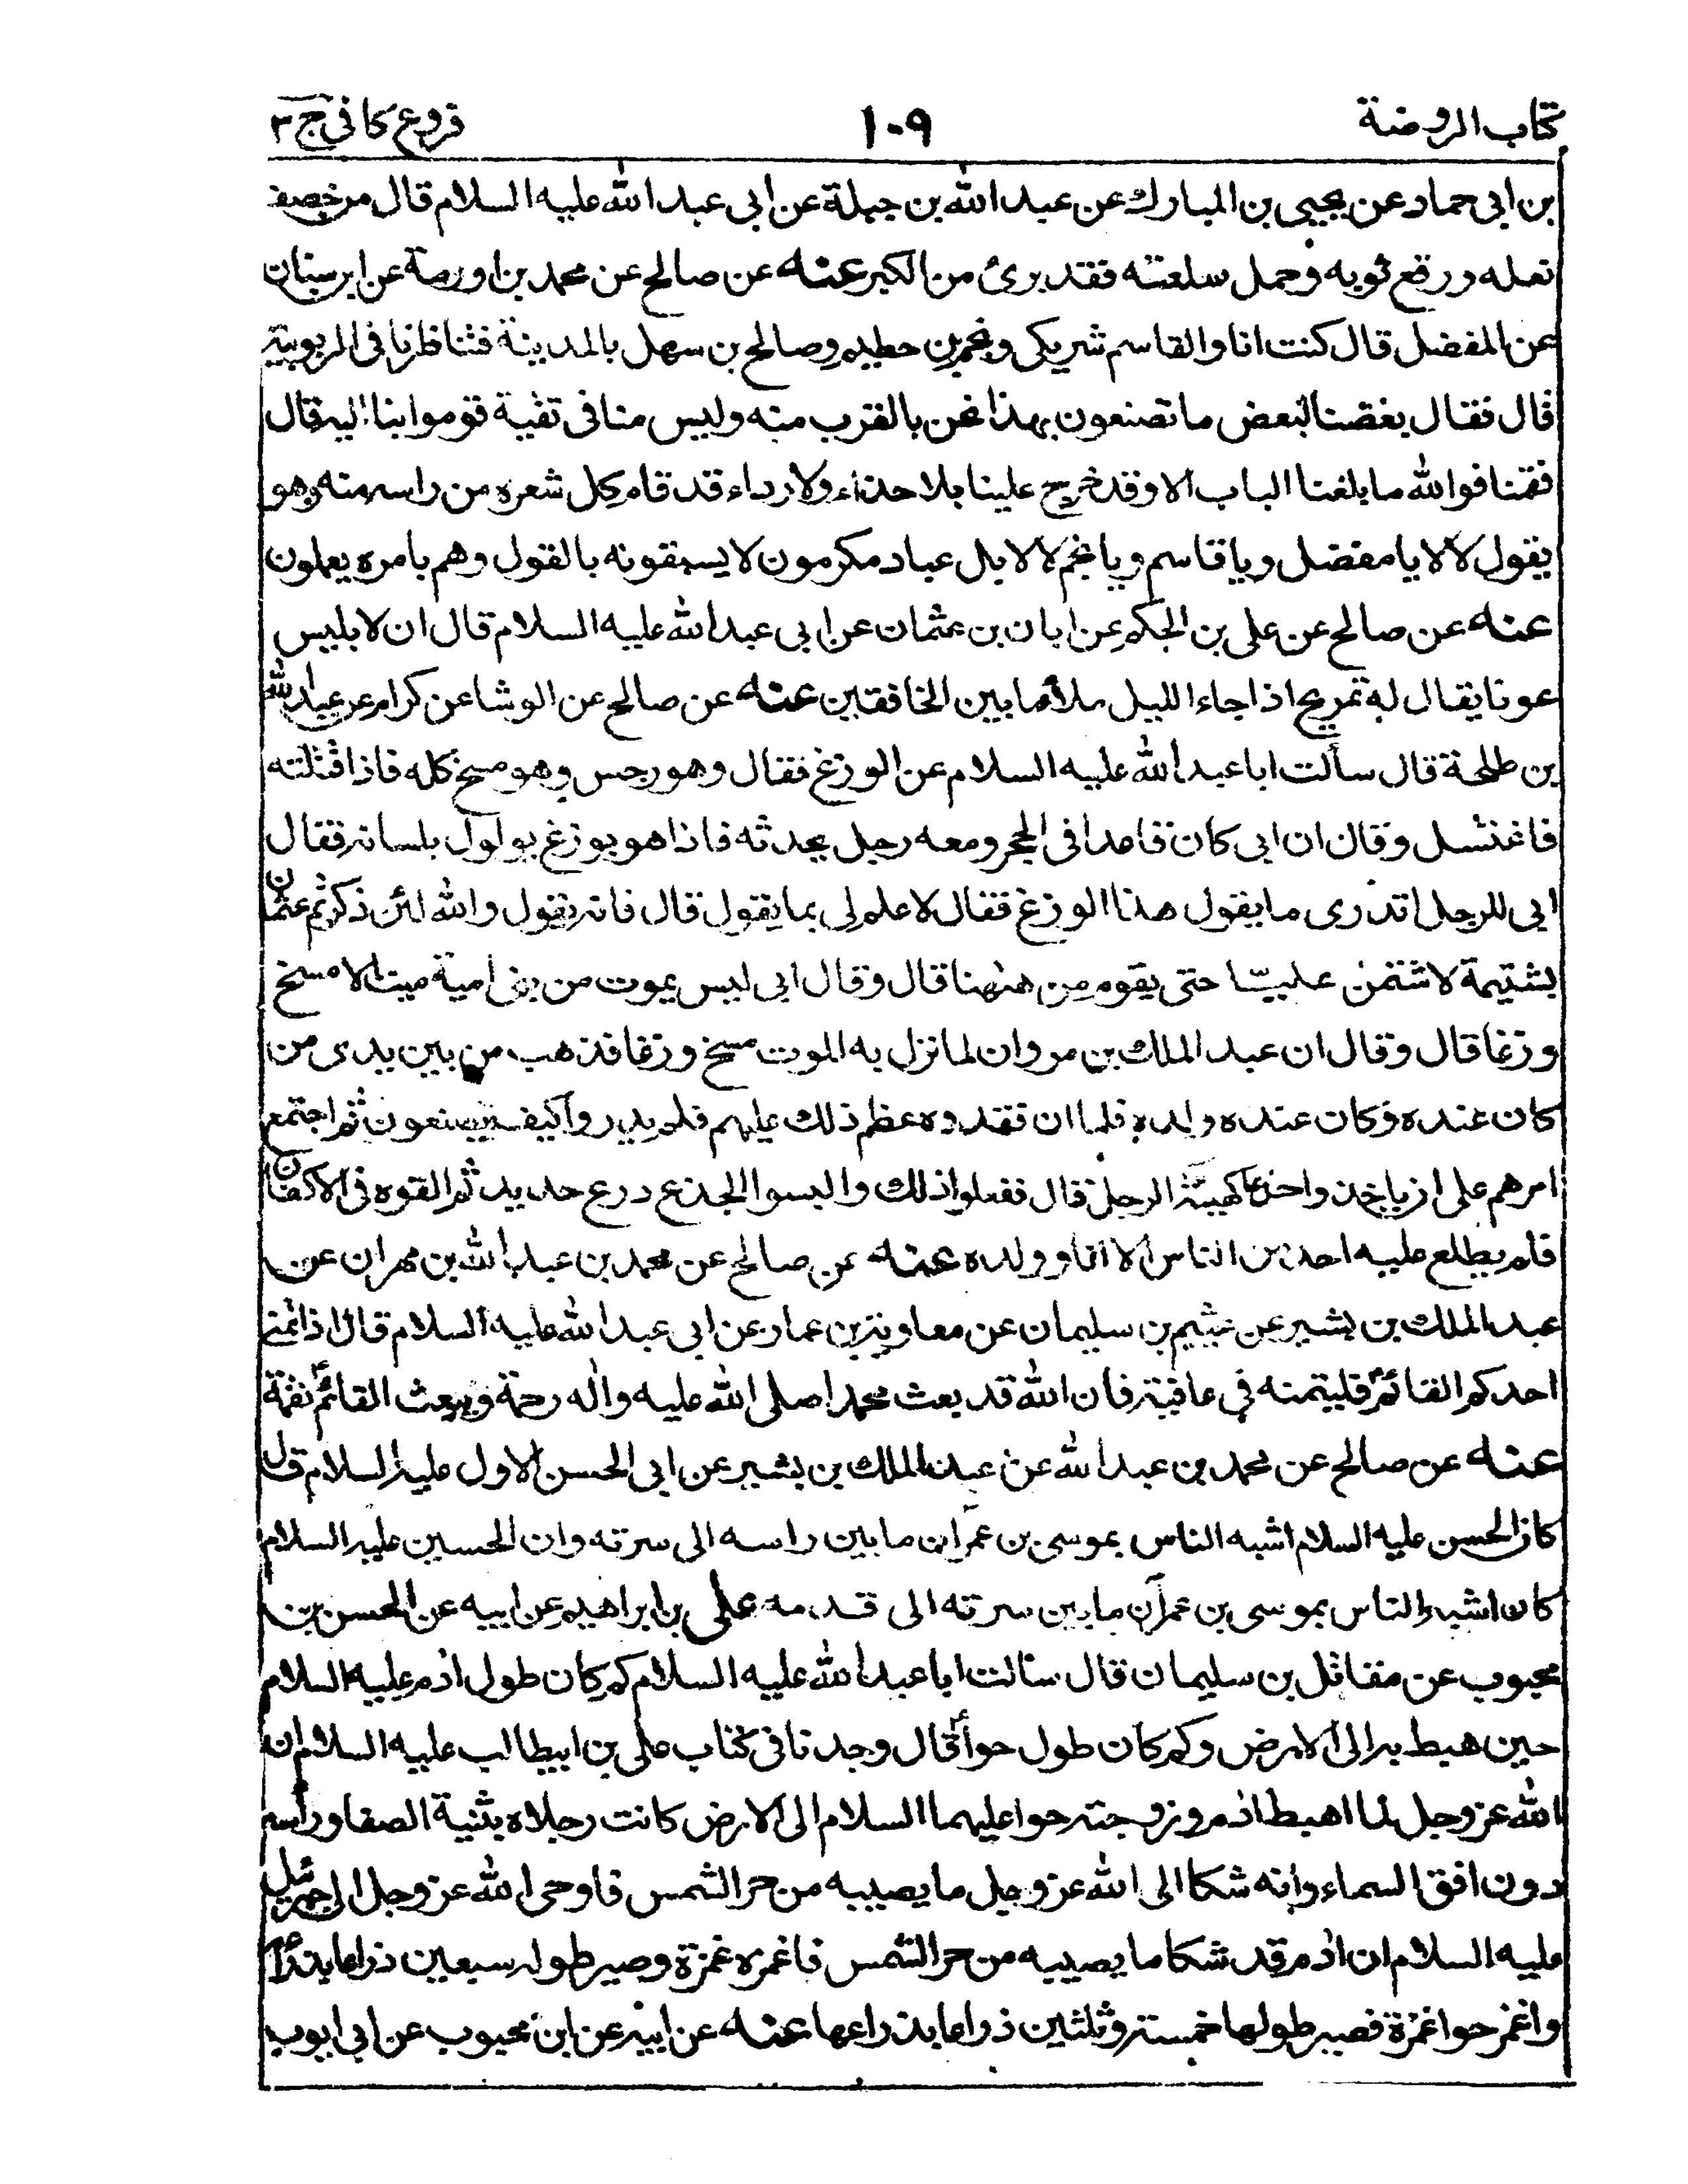 كتاب الروضة ١٠٩ فروع كافى ج ٣
بن ابى حماد عن يحيى بن المبارك عن عبد الله بن جبلة عن ابى عبد الله عليه السلام قال من خصف
نعله ورقع ثوبه وحمل سلعته فقد برئ من الكبر عنه عن صالح عن محمد بن اورمة عن ابن سنان
عن المفضل قال كنت انا والقاسم شريكى ونجم بن حطيم وصالح بن سهل بالمدينة فتناظرنا فى الربوبية
قال فقال بعضنا لبعض ما تصنعون بهذا نحن بالقرب منه وليس منا فى تقية قوموا بنا اليه قال
فقمنا فوالله ما بلغنا الباب الا وقد خرج علينا بلا حذاء ولا رداء قد قام كل شعره من راسه منه وهو
يقول لا لا يا مفضل ويا قاسم ويا نجم لا لا بل عباد مكرمون لا يسبقونه بالقول وهم بامره يعملون
عنه عن صالح عن على بن الحكم عن ابان بن عثمان عن ابى عبد الله عليه السلام قال ان لابليس
عونا يقال له تمريح اذا جاء الليل ملأ ما بين الخافقين عنه عن صالح عن الوشا عن كرام عن عبد الله
بن طلحة قال سألت ابا عبد الله عليه السلام عن الوزغ فقال وهو رجس وهو مسخ كله فاذا قتلته
فاغتسل وقال ان ابى كان قاعدا فى الحجر ومعه رجل يحدثه فاذا هو بوزغ يولول بلسانه فقال
ابى للرجل اتدرى ما يقول هذا الوزغ فقال لا علم لى بما يقول قال فانه يقول والله لئن ذكرتم عثمان
بشتيمة لاشتمن عليا حتى يقوم من ههنا قال وقال ابى ليس يموت من بنى امية ميت الا مسخ
وزغا قال وقال ان عبد الملك بن مروان لما نزل به الموت مسخ وزغا فذهب من بين يدى من
كان عنده وكان عنده ولده فلما ان فقدوه عظم ذلك عليهم فلم يدروا كيف يصنعون ثم اجتمع
امرهم على ان ياخذوا جذعا كهيئة الرجل قال ففعلوا ذلك والبسوا الجذع درع حديد ثم القوه فى الاكفان
فلم يطلع عليه احد من الناس الا انا وولده عنه عن صالح عن محمد بن عبد الله بن مهران عن
عبد الملك بن بشير عن عثيم بن سليمان عن معاوية بن عمار عن ابى عبد الله عليه السلام قال اذا تمنى
احدكم القائم فليتمنه في عافية فان الله قد بعث محمدا صلى الله عليه واله رحمة ويبعث القائم نقمة
عنه عن صالح عن محمد بن عبد الله عن عبد الملك بن بشير عن ابى الحسن الاول عليه السلام قال
كان الحسن عليه السلام اشبه الناس بموسى بن عمران ما بين راسه الى سرته وان الحسين عليه السلام
كان اشبه الناس بموسى بن عمران ما بين سرته الى قدمه على بن ابراهيم عن ابيه عن الحسن بن
محبوب عن مقاتل بن سليمان قال سالت ابا عبد الله عليه السلام كم كان طول ادم عليه السلام
حين هبط به الى الارض وكم كان طول حوا قال وجدنا فى كتاب على بن ابيطالب عليه السلام ان
الله عز وجل لما اهبط ادم وزوجته حوا عليهما السلام الى الارض كانت رجلاه بثنية الصفا وراسه
دون افق السماء وانه شكا الى الله عز وجل ما يصيبه من حر الشمس فاوحى الله عز وجل الى جبرئيل
عليه السلام ان ادم قد شكا ما يصيبه من حر الشمس فاغمزه غمزة وصير طوله سبعين ذراعا بذراعه
واغمز حوا غمزة فصير طولها خمسة وثلثين ذراعا بذراعها عنه عن ابيه عن ابن محبوب عن ابى ايوب